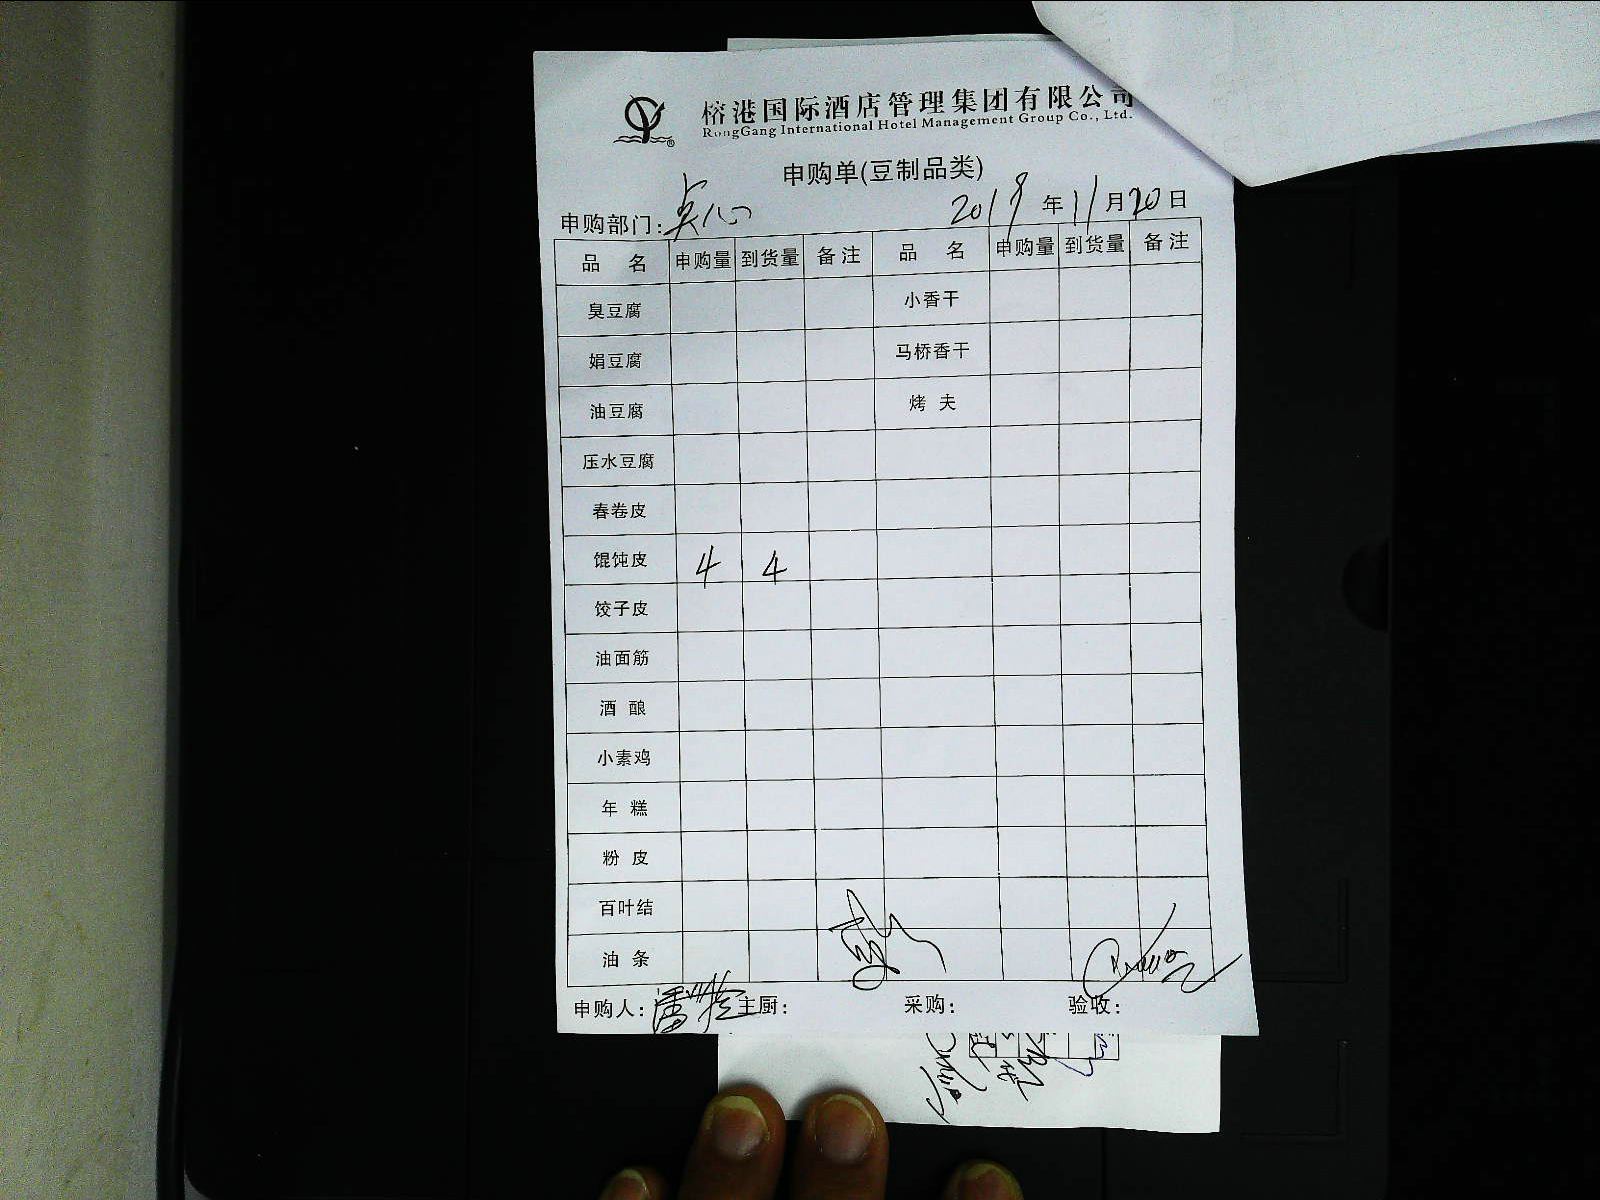 榕港国际酒店管理集团有限公司
RongGang International Hotel Management Group Co., Ltd.
申购单(豆制品类)
申购部门:点心 2019年11月20日
品 名 申购量 到货量 备注 品 名 申购量 到货量 备注
臭豆腐 小香干
娟豆腐 马桥香干
油豆腐 烤 夫
压水豆腐
春卷皮
馄饨皮 4 4
饺子皮
油面筋
酒 酿
小素鸡
年 糕
粉 皮
百叶结
油 条
申购人: 主厨: 采购: 验收: